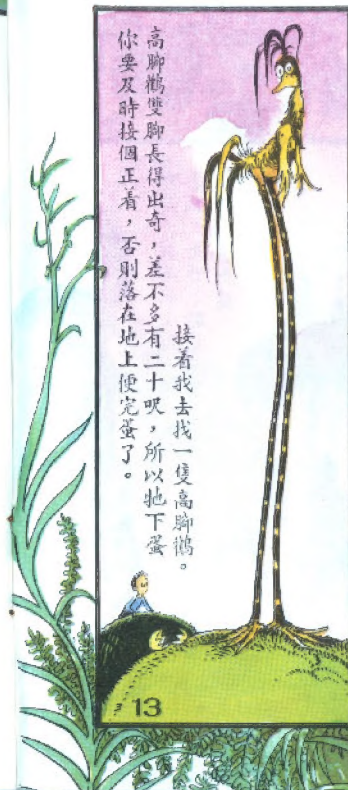 接着我去找一隻高腳鶴。
高腳鶴雙腳長得出奇，差不多有二十呎，所以牠下蛋
你要及時接個正着，否則落在地上便完蛋了。
13